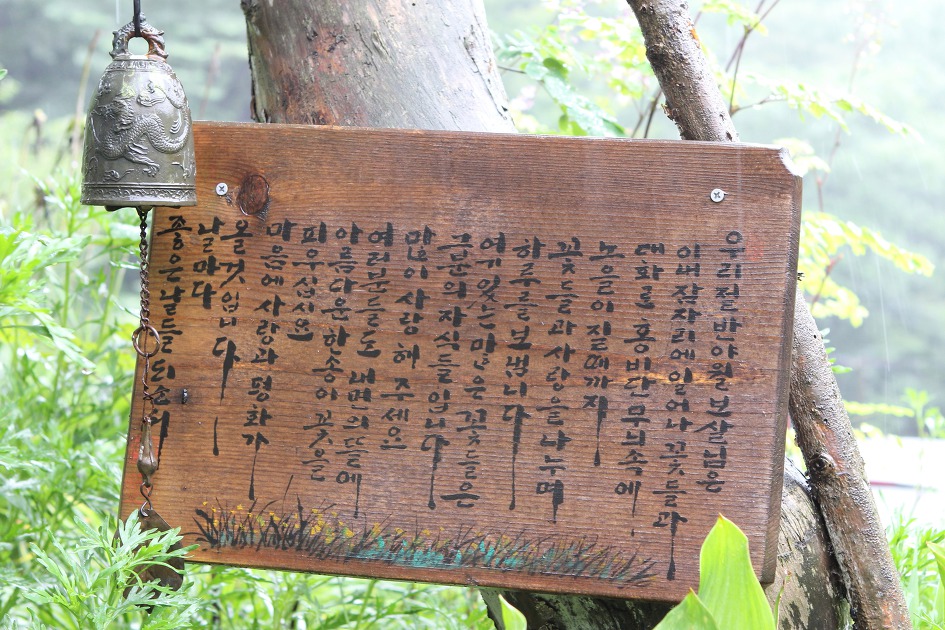 우리절 반야월보살님은
이내잠자리에 일어나 꽃들과
대화로 홍비단 무늬속에
노을이 질때까지
꽃들과 사랑을 나누며
하루를 보냅니다
있는 많은 꽃들은
그분의 자식들입니다
많이 사랑해 주세요
여러분들도 내면의 뜰에
아름다운 한송이 꽃을
피우십시요
마음에 사랑과 평화가
올것입니다
날마다
좋은날들